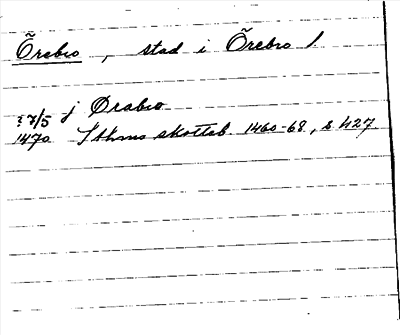 Örebro, stad i Örebro l.
27/5 j Ørabro
1470 Sthms skotteb. 1460-68, s 427